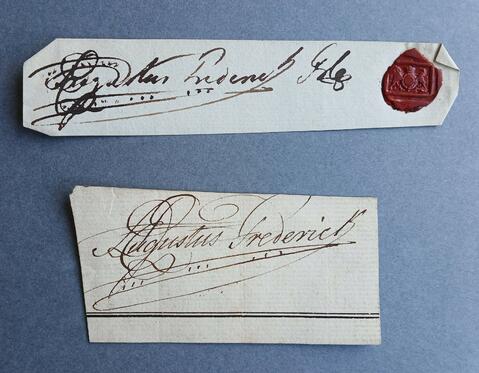 Augustus Frederick
Augustus Frederick